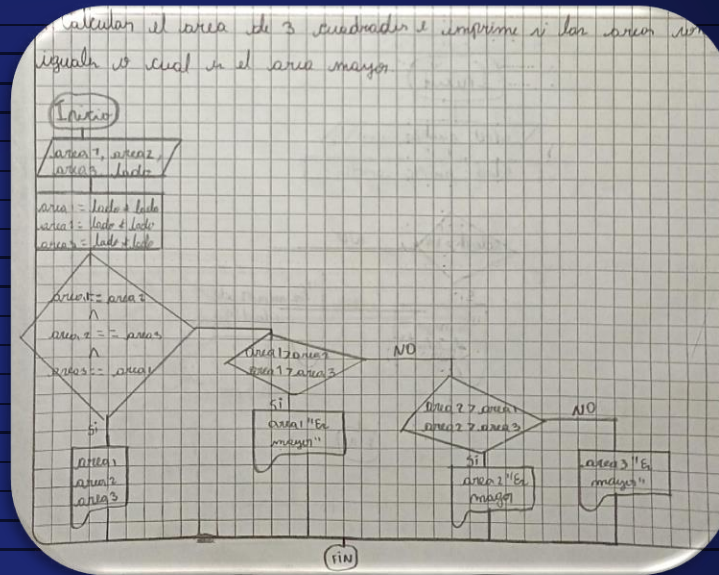 Calcular el area de 3 cuadrados e imprime si las areas son
iguales o cual es el area mayor.
Inicio
area1, area2,
area3, lado
area1 = lado * lado
area1 = lado * lado
area3 = lado * lado
area1 == area2
∧
area2 == area3
∧
area3 == area1
si
area1
area2
area3
area1>area2
area1>area3
NO
si
area1 "Es
mayor"
area2>area1
area2>area3
NO
si
area2 "Es
mayor
area3 "Es
mayor"
FIN